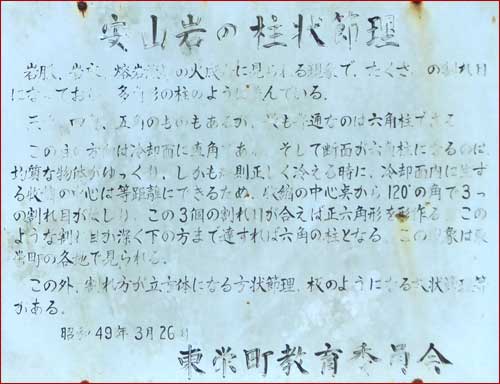 安山岩の柱状節理
岩脈、岩床、熔岩流の火成岩に見られる現象で、たくさんの割れ目
になっており、多角形の柱のように並んでいる。
三角、四角、五角のものもあるが、最も普通なのは六角柱である。
この柱の方向は冷却面に直角である。そして断面が六角柱になるのは
均質な物体がゆっくり、しかも規則正しく冷える時に、冷却面内に生ず
る収縮の中心は等距離にできるため、収縮の中心点から120°の角で3つ
の割れ目が生じ、この3個の割れ目が合えば正六角形を形作る。この
ような割れ目が深く下の方まで達すれば六角の柱となる。この現象は東
栄町の各地で見られる。
この外、割れ方が立方体になる方状節理、板のようになる板状節理等
がある。
昭和49年3月26日
東栄町教育委員会